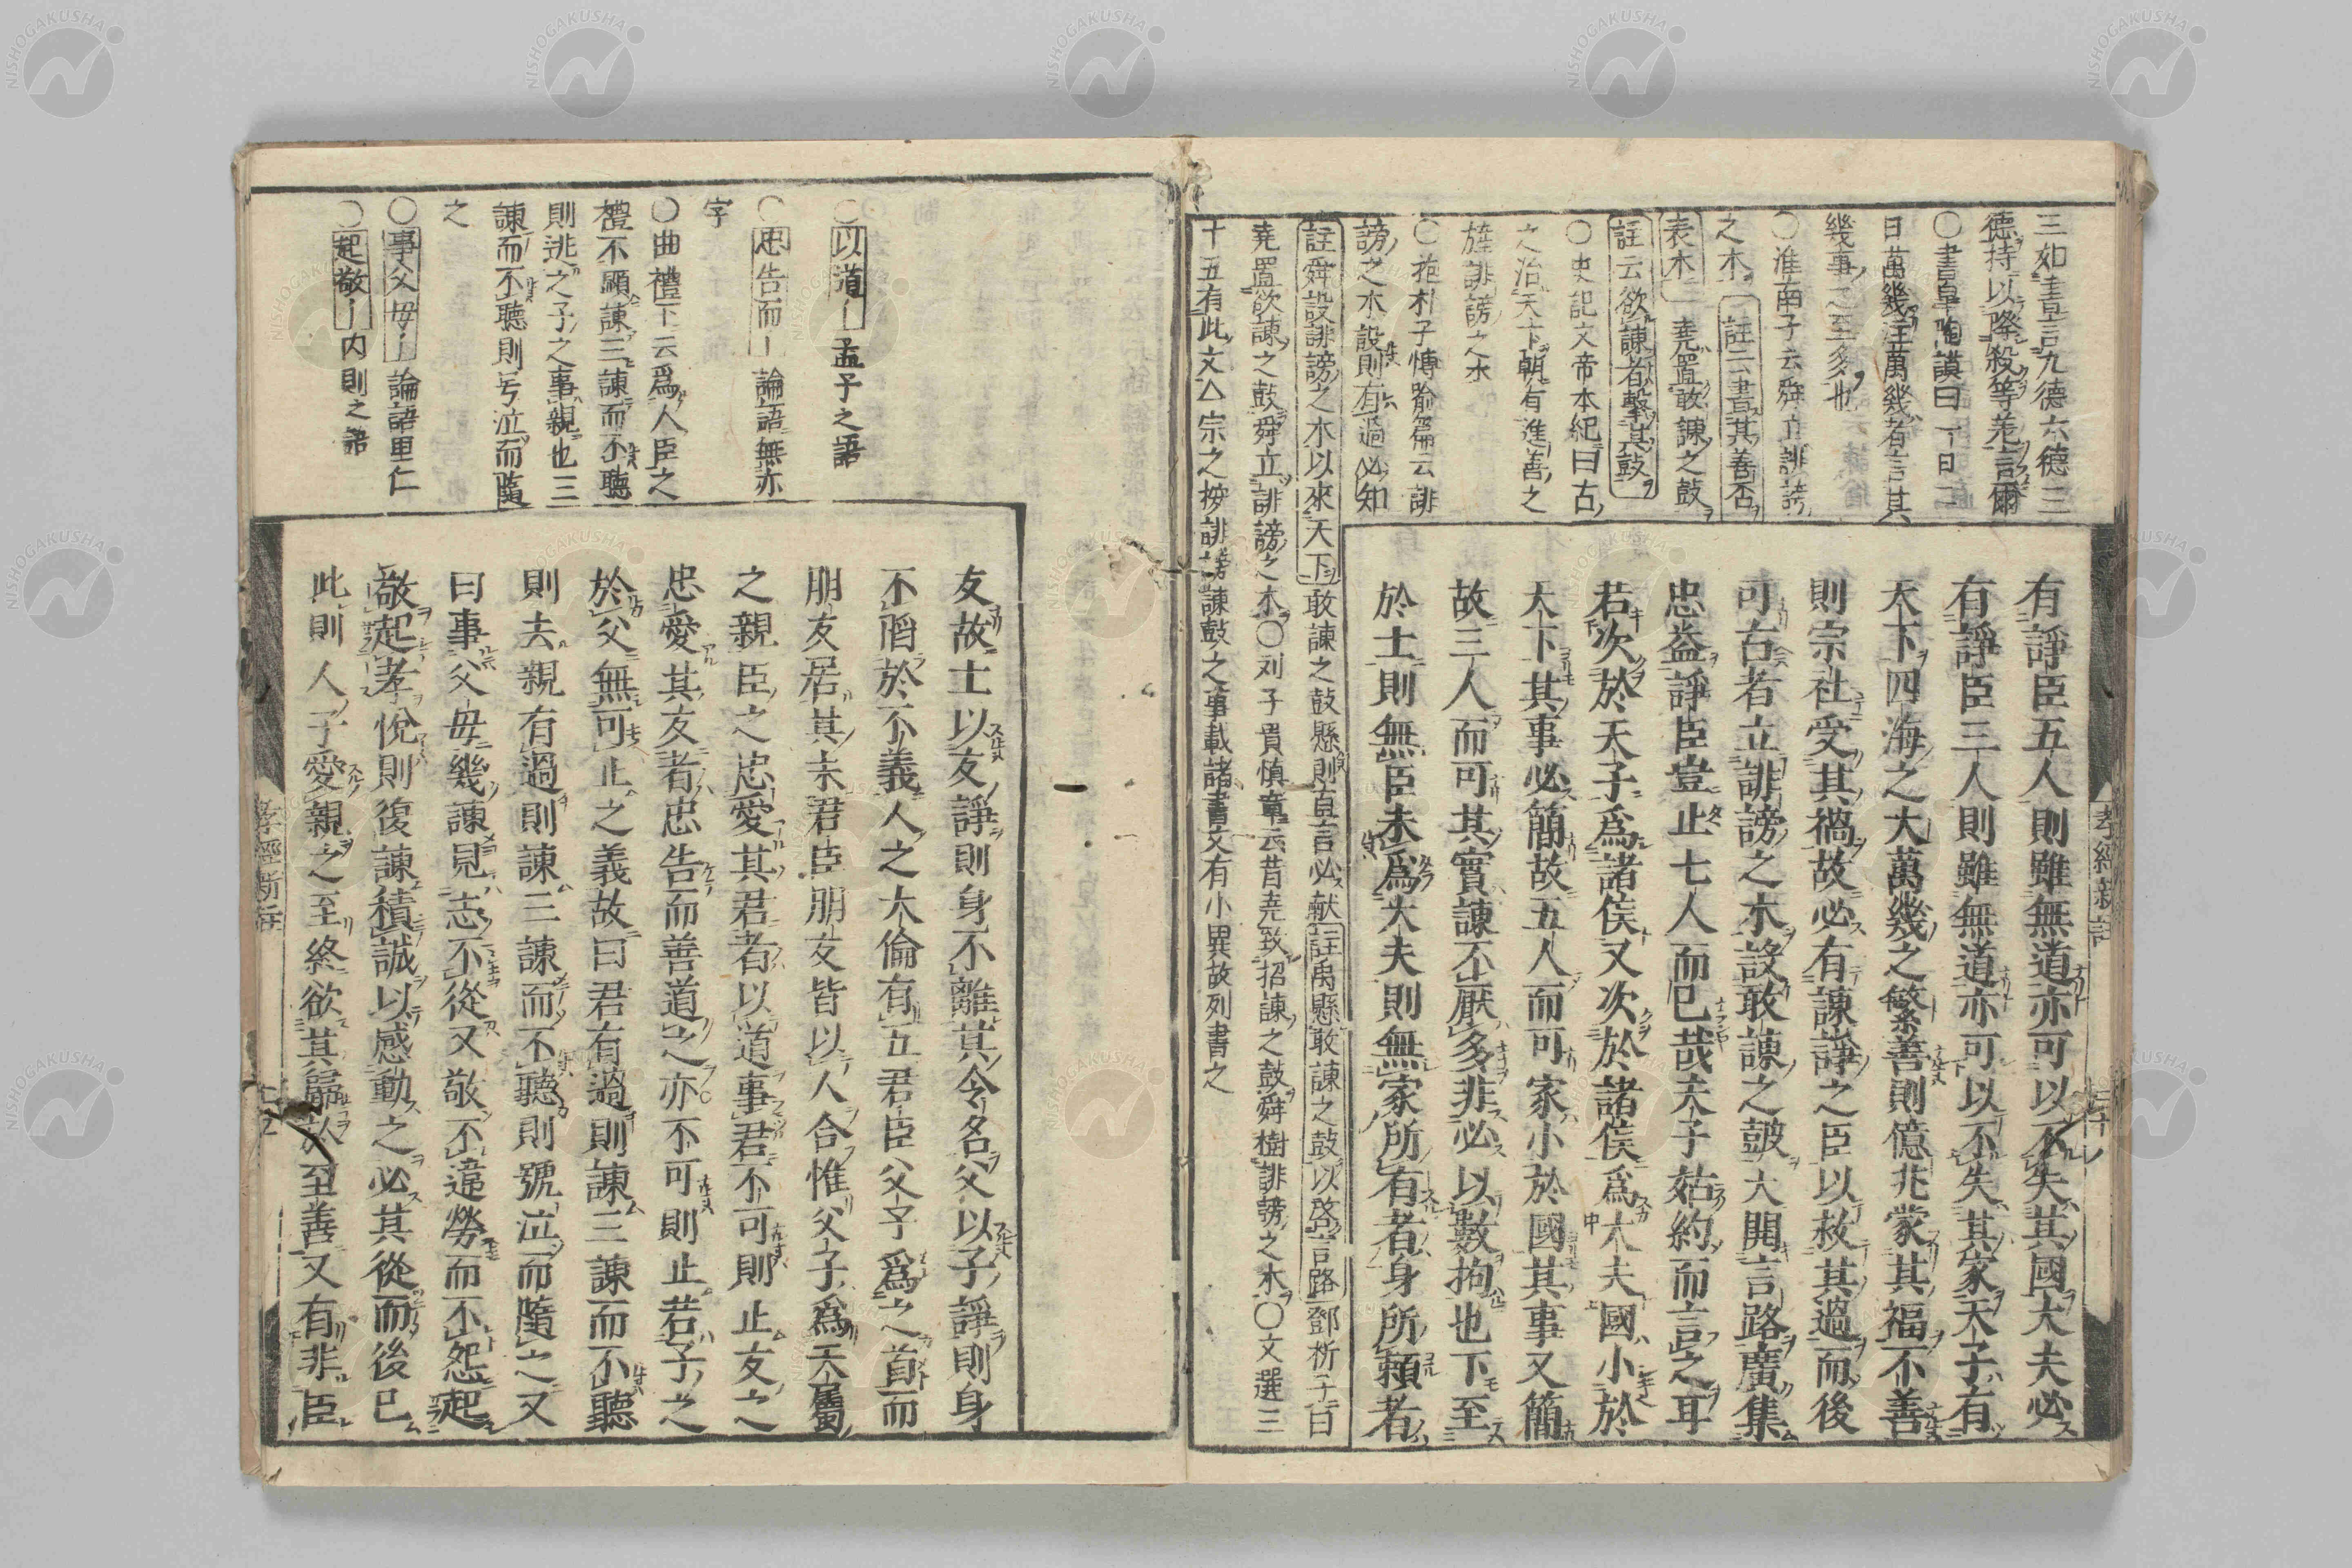 三如書言九德六德三
德持以降殺等差言爾
○書皐陶謨曰一日二
日萬幾註萬幾者言其
幾事之至多也
○淮南子云舜立誹謗
之木註云書其善否
表木 堯置敢諫之鼓
註云欲諫者擊其鼓
○史記文帝本紀曰古
之治天下朝有進善之
旌誹謗之木
○抱朴子慱喻篇云誹
謗之木設則有過必知
註舜設誹謗之木以來天下敢諫之鼓懸則直言必献註禹懸敢諫之鼓以啓言路鄧析子曰
堯置欲諫之鼓舜立誹謗之木○刘子貴慎章云昔堯致招諫之鼓舜樹誹謗之木○文選三
十五有此文△宗之按誹謗諫鼓之事載諸書文有小異故列書之
有諍臣五人則雖無道亦可以不失其國大夫必
有諍臣三人則雖無道亦可以不失其家天子有
天下四海之大萬幾之繁善則億兆蒙其福不善
則宗社受其禍故必有諫諍之臣以救其過而後
可古者立誹謗之木設敢諫之鼓大開言路廣集
忠益諍臣豈止七人而已哉夫子姑約而言之耳
若次於天子爲諸侯又次於諸侯爲大夫國小於
天下其事必簡故五人而可家小於國其事又簡
故三人而可其實諫不厭多非必以數拘也下至
於士則無臣未爲大夫則無家所有者身所頼者
孝經新
○以道｜孟子之語
○忠告而｜論語無亦
字
○曲禮下云爲人臣之
禮不顯諫三諫而不聽
則逃之子之事親也三
諫而不聽則号泣而隨
之
○事父母｜論語里仁
○起敬｜内則之語
友故士以友諍則身不離其令名父以子諍則身
不陷於不義人之大倫有五君臣父子爲之首而
朋友居其末君臣朋友皆以人合惟父子爲天屬
之親臣之忠愛其君者以道事君不可則止友之
忠愛其友者忠告而善道之亦不可則止若子之
於父無可止之義故曰君有過則諫三諫而不聽
則去親有過則諫三諫而不聽則號泣而隨之又
曰事父母幾諫見志不從又敬不違勞而不怨起
敬起孝悅則復諫積誠以感動之必其從而後已
此則人子愛親之至終欲其歸於至善又有非臣
孝經新
NISHOGAKUSHA